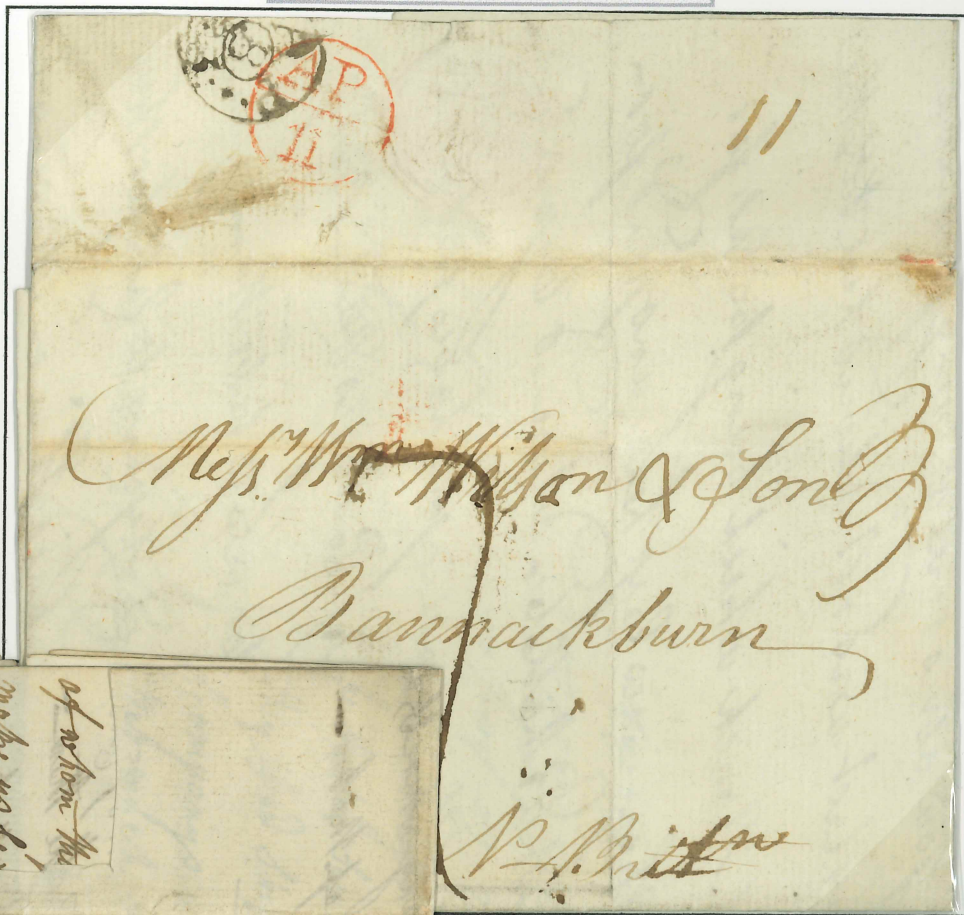 8
AP
11
11
Messrs Wm Wilson & Son
7
Bannackburn
N. Britn
of whom the